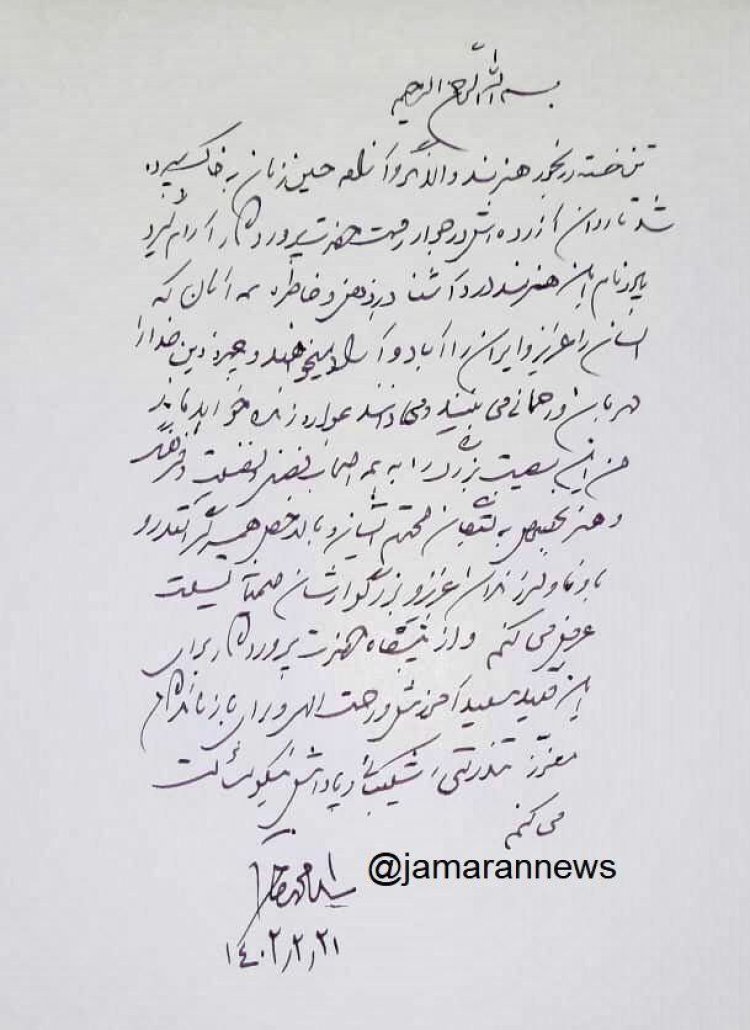 بسم الله الرحمن الرحیم
تن خسته و رنجور هنرمند والاگهر و آقا حسین زمان به خاک سپرده
شد تا روان آزرده‌اش در جوار رحمت حضرت پروردگار آرام گیرد
یاد و نام این هنرمند درد آشنا در ذهن و خاطره همه آنان که
انسان را عزیز و ایران را آباد و آزاد میخواهند و چهره دین خدا را
مهربان و رحمانی می بینند و می دانند همواره زنده خواهد ماند
من این مصیبت بزرگ را به همه اصحاب فضل و فضیلت و فرهنگ
و هنر بخصوص به محترم ایشان و بالاخص همسر گرانقدر و
باوفا و فرزندان عزیز و بزرگوارشان صمیمانه تسلیت
عرض می کنم و از پیشگاه حضرت پروردگار برای
این فقید سعید آمرزش و رحمت الهی و برای بازماندگان
معزز تندرستی، شکیبائی و پاداش نیکو مسألت
می کنم
سید محمد خاتمی
۱۴۰۲٫۲٫۲۱
@jamarannews